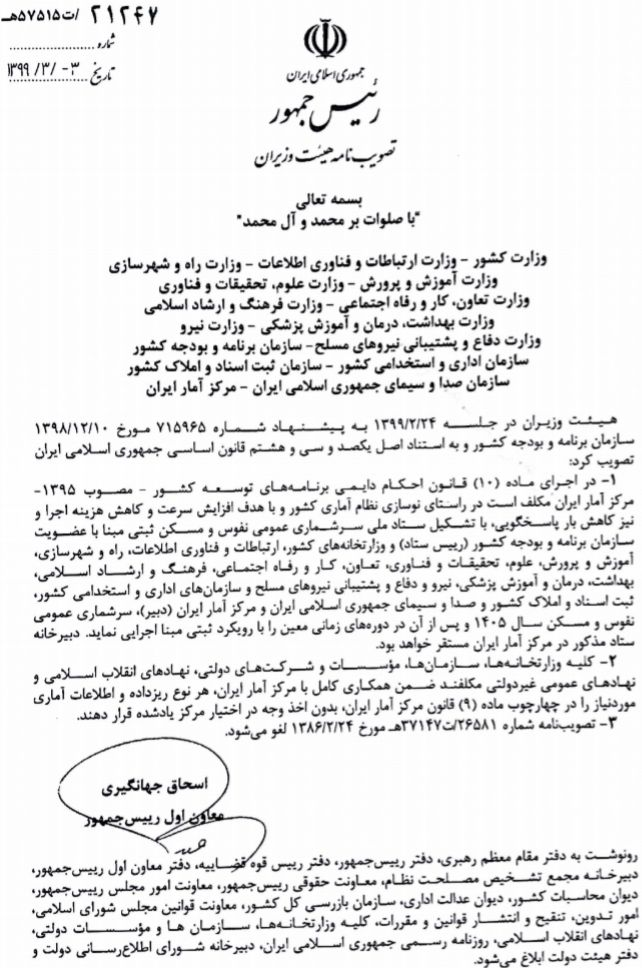 ۲۱۲۴۷ /ت۵۷۵۱۵هـ
شماره
تاریخ ۱۳۹۹/۳/-۳
جمهوری اسلامی ایران
رئیس جمهور
تصویب نامه هیئت وزیران
بسمه تعالی
"با صلوات بر محمد و آل محمد"
وزارت کشور – وزارت ارتباطات و فناوری اطلاعات – وزارت راه و شهرسازی
وزارت آموزش و پرورش – وزارت علوم، تحقیقات و فناوری
وزارت تعاون، کار و رفاه اجتماعی – وزارت فرهنگ و ارشاد اسلامی
وزارت بهداشت، درمان و آموزش پزشکی – وزارت نیرو
وزارت دفاع و پشتیبانی نیروهای مسلح– سازمان برنامه و بودجه کشور
سازمان اداری و استخدامی کشور – سازمان ثبت اسناد و املاک کشور
سازمان صدا و سیمای جمهوری اسلامی ایران – مرکز آمار ایران
هیئت وزیران در جلسه ۱۳۹۹/۲/۲۴ به پیشنهاد شماره ۷۱۵۹۶۵ مورخ ۱۳۹۸/۱۲/۱۰
سازمان برنامه و بودجه کشور و به استناد اصل یکصد و سی و هشتم قانون اساسی جمهوری اسلامی ایران
تصویب کرد:
۱– در اجرای ماده (۱۰) قانون احکام دایمی برنامه‌های توسعه کشور – مصوب ۱۳۹۵–
مرکز آمار ایران مکلف است در راستای نوسازی نظام آماری کشور و با هدف افزایش سرعت و کاهش هزینه اجرا و
نیز کاهش بار پاسخگویی، با تشکیل ستاد ملی سرشماری عمومی نفوس و مسکن ثبتی مبنا با عضویت
سازمان برنامه و بودجه کشور (رییس ستاد) و وزارتخانه‌های کشور، ارتباطات و فناوری اطلاعات، راه و شهرسازی،
آموزش و پرورش، علوم، تحقیقات و فناوری، تعاون، کار و رفاه اجتماعی، فرهنگ و ارشاد اسلامی،
بهداشت، درمان و آموزش پزشکی، نیرو و دفاع و پشتیبانی نیروهای مسلح و سازمان‌های اداری و استخدامی کشور،
ثبت اسناد و املاک کشور و صدا و سیمای جمهوری اسلامی ایران و مرکز آمار ایران (دبیر)، سرشماری عمومی
نفوس و مسکن سال ۱۴۰۵ و پس از آن در دوره‌های زمانی معین را با رویکرد ثبتی مبنا اجرایی نماید. دبیرخانه
ستاد مذکور در مرکز آمار ایران مستقر خواهد بود.
۲– کلیه وزارتخانه‌ها، سازمان‌ها، مؤسسات و شرکت‌های دولتی، نهادهای انقلاب اسلامی و
نهادهای عمومی غیردولتی مکلفند ضمن همکاری کامل با مرکز آمار ایران، هر نوع ریزداده و اطلاعات آماری
موردنیاز را در چهارچوب ماده (۹) قانون مرکز آمار ایران، بدون اخذ وجه در اختیار مرکز یادشده قرار دهند.
۳– تصویب‌نامه شماره ۲۶۵۸۱/ت۳۷۱۴۷هـ مورخ ۱۳۸۶/۲/۲۴ لغو می‌شود.
اسحاق جهانگیری
معاون اول رییس‌جمهور
رونوشت به دفتر مقام معظم رهبری، دفتر رییس‌جمهور، دفتر رییس قوه قضاییه، دفتر معاون اول رییس‌جمهور،
دبیرخانه مجمع تشخیص مصلحت نظام، معاونت حقوقی رییس‌جمهور، معاونت امور مجلس رییس‌جمهور،
دیوان محاسبات کشور، دیوان عدالت اداری، سازمان بازرسی کل کشور، معاونت قوانین مجلس شورای اسلامی،
امور تدوین، تنقیح و انتشار قوانین و مقررات، کلیه وزارتخانه‌ها، سازمان ها و مؤسسات دولتی،
نهادهای انقلاب اسلامی، روزنامه رسمی جمهوری اسلامی ایران، دبیرخانه شورای اطلاع‌رسانی دولت و
دفتر هیئت دولت ابلاغ می‌شود.